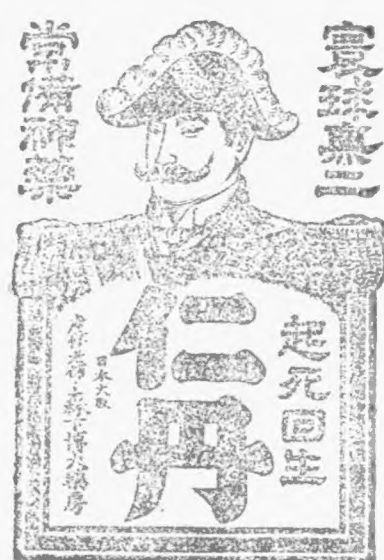 寰球無二
常備神藥
起死回生
仁丹
日本大阪
森下博大藥房